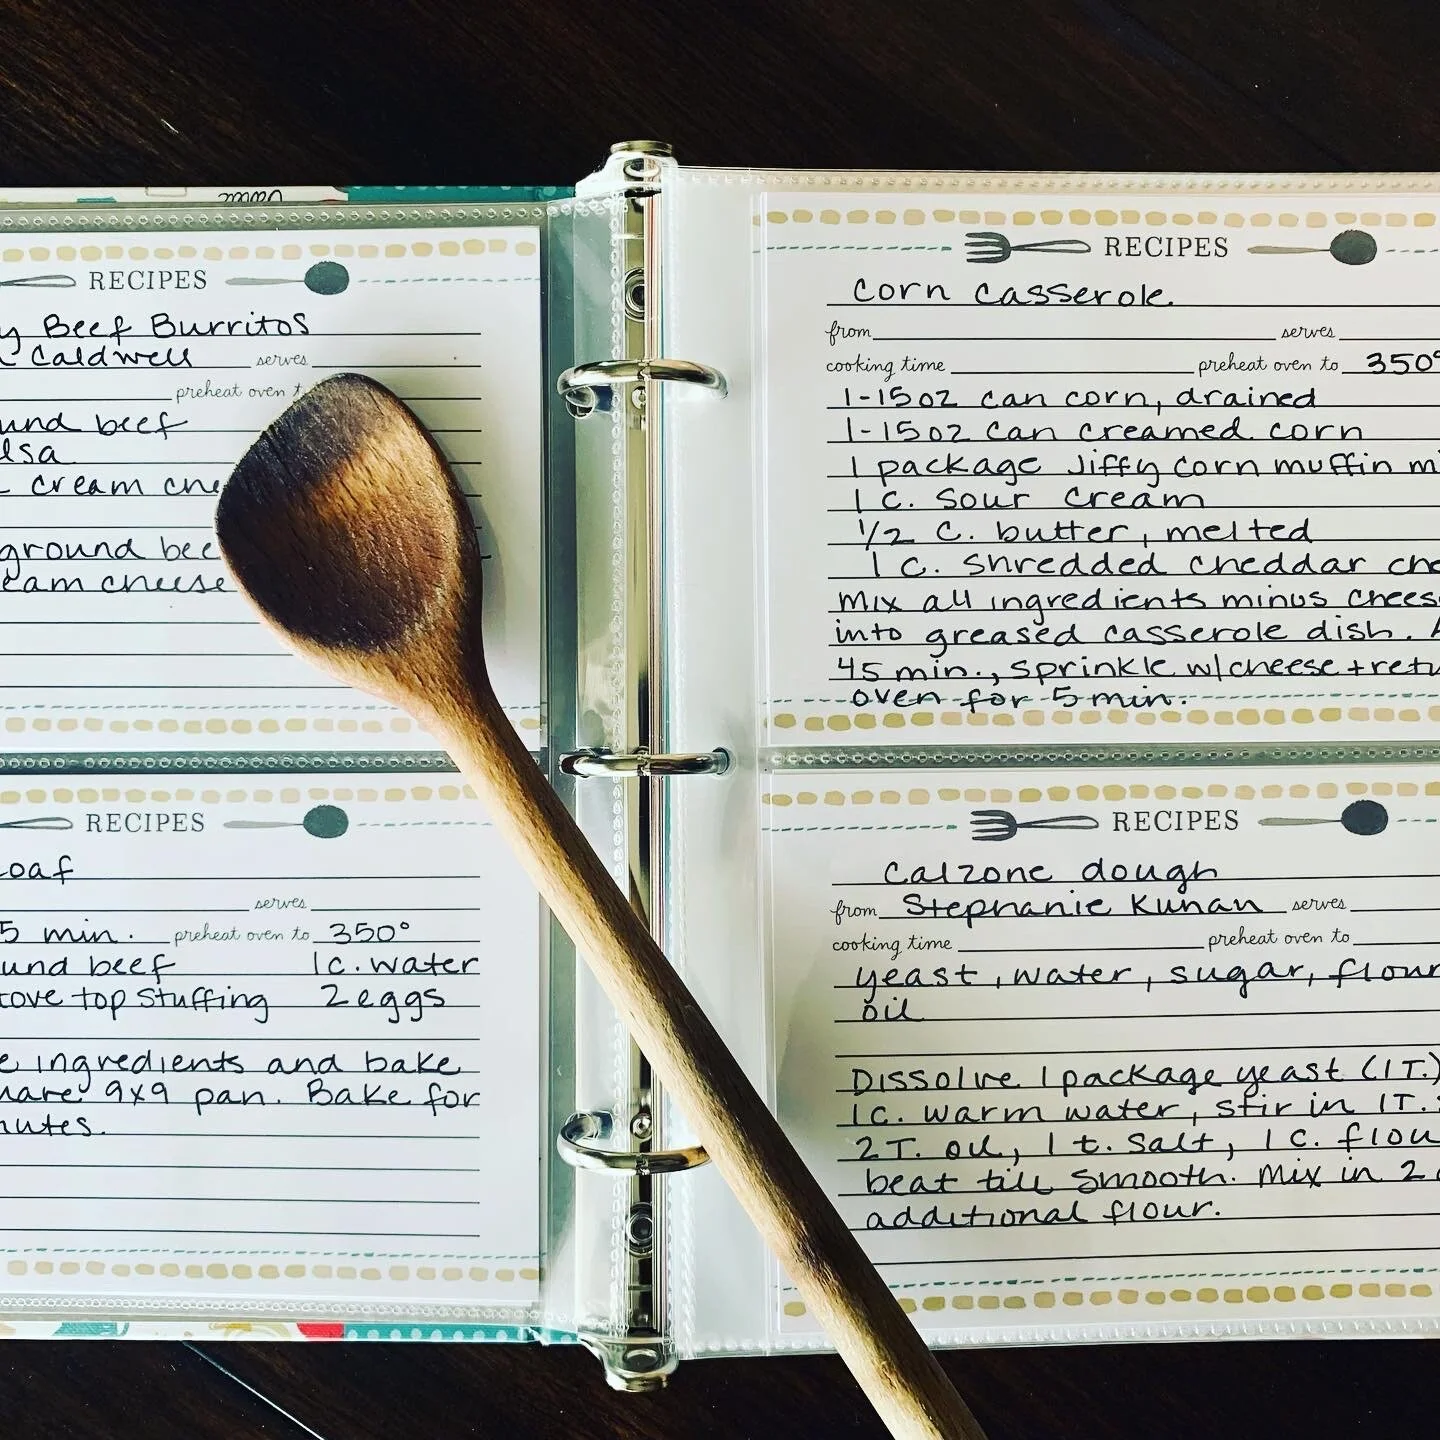 RECIPES
y Beef Burritos
n Caldwell serves
preheat oven t
und beef
lsa
cream che
ground bee
eam cheese
RECIPES
oaf
serves
5 min. preheat oven to 350°
und beef 1c. water
tove top stuffing 2 eggs
e ingredients and bake
uare 9x9 pan. Bake for
nutes.
RECIPES
Corn Casserole
from serves
cooking time preheat oven to 350°
1-15oz can corn, drained
1-15oz can creamed corn
1 package Jiffy corn muffin mi
1 c. sour cream
1/2 c. butter, melted
1 c. shredded cheddar che
Mix all ingredients minus chees
into greased casserole dish. A
45 min., sprinkle w/cheese + retu
oven for 5 min.
RECIPES
Calzone dough
from Stephanie Kunan serves
cooking time preheat oven to
yeast, water, sugar, flour
oil
Dissolve 1 package yeast (1T.)
1c. warm water, stir in 1T.
2T. oil, 1 t. salt, 1 c. flou
beat till smooth. Mix in 2
additional flour.